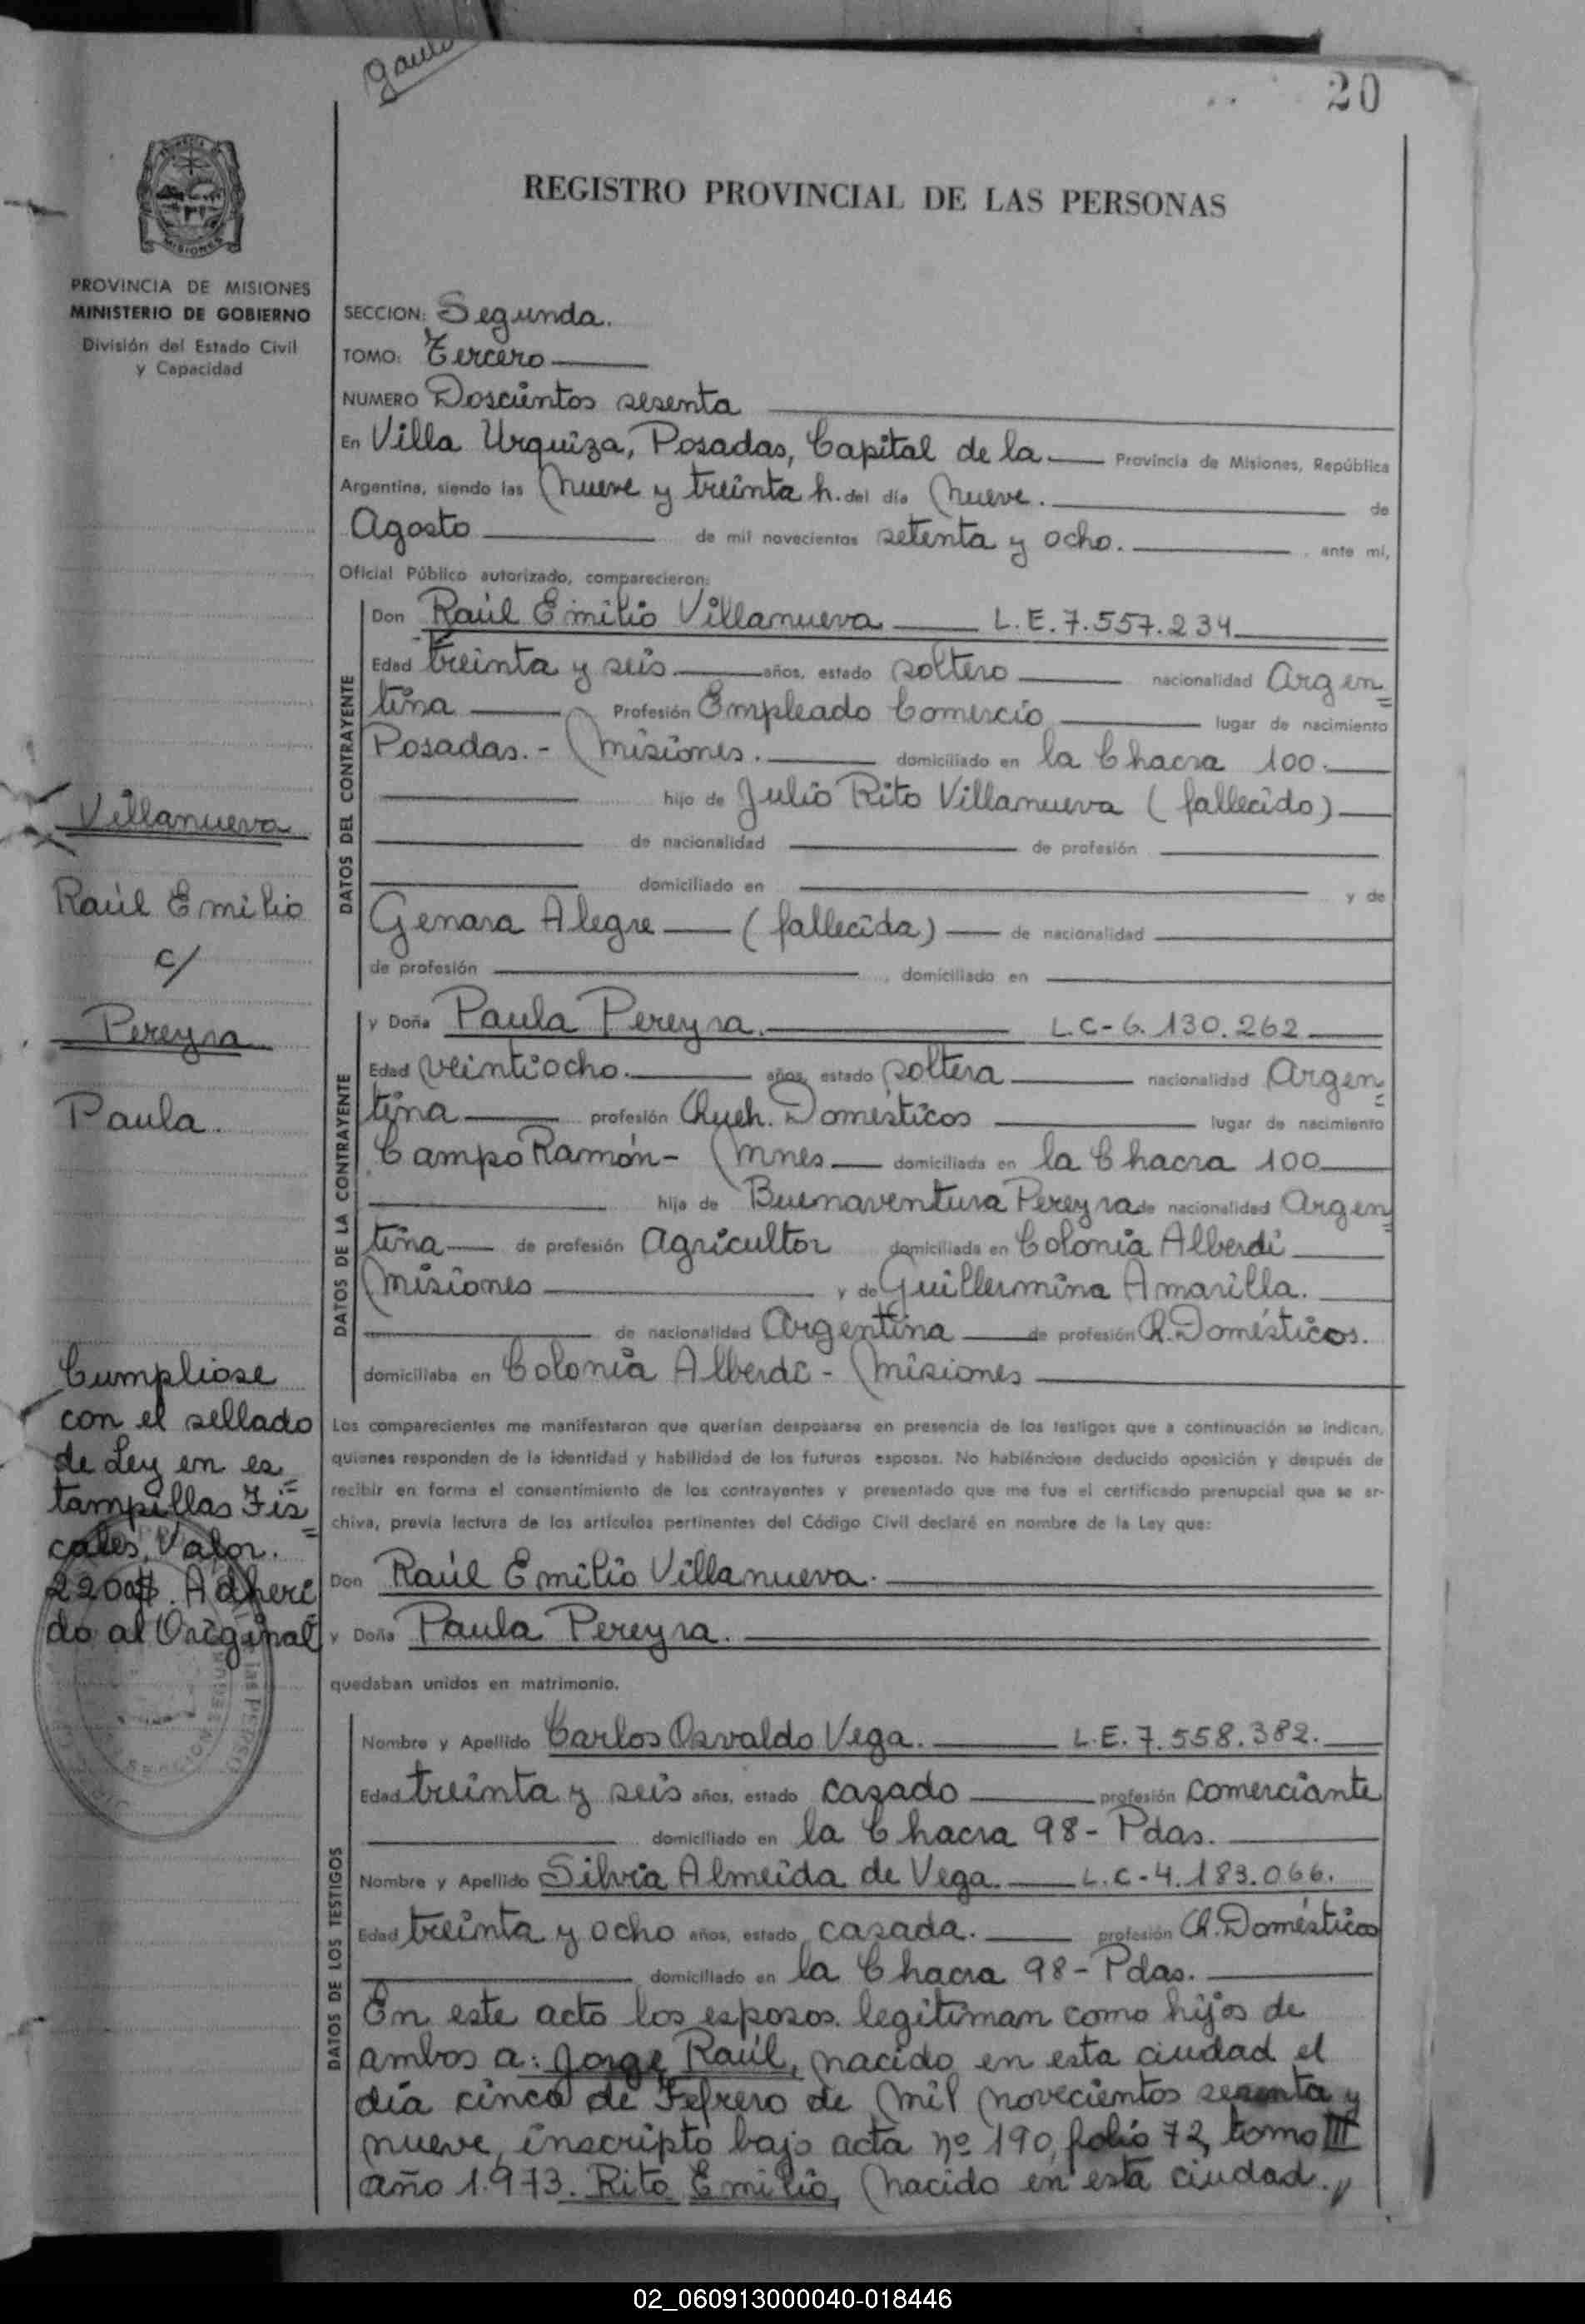 20
REGISTRO PROVINCIAL DE LAS PERSONAS
MISIONES
PROVINCIA DE MISIONES
MINISTERIO DE GOBIERNO
División del Estado Civil
y Capacidad
SECCION: Segunda.
TOMO: Tercero
NUMERO Doscientos sesenta
En Villa Urquiza, Posadas, Capital de la Provincia de Misiones, República
Argentina, siendo las Nueve y treinta h. del día Nueve. de
Agosto de mil novecientos setenta y ocho. ante mí,
Oficial Público autorizado, comparecieron:
DATOS DEL CONTRAYENTE
Don Raúl Emilio Villanueva L.E. 7.557.234
Edad treinta y seis años, estado soltero nacionalidad Argen=
tina Profesión Empleado Comercio lugar de nacimiento
Posadas.- Misiones. domiciliado en la Chacra 100.
hijo de Julio Rito Villanueva (fallecido)
de nacionalidad de profesión
domiciliado en y de
Genara Alegre (fallecida) de nacionalidad
de profesión , domiciliado en
DATOS DE LA CONTRAYENTE
y Doña Paula Pereyra. L.C-6.130.262
Edad veintiocho. años, estado soltera nacionalidad Argen=
tina profesión Queh. Domésticos lugar de nacimiento
Campo Ramón- Mnes domiciliada en la Chacra 100
hija de Buenaventura Pereyra de nacionalidad Argen=
tina de profesión Agricultor domiciliada en Colonia Alberdi
Misiones y de Guillermina Amarilla.
de nacionalidad Argentina de profesión Q. Domésticos.
domiciliaba en Colonia Alberdi - Misiones
Los comparecientes me manifestaron que querían desposarse en presencia de los testigos que a continuación se indican,
quienes responden de la identidad y habilidad de los futuros esposos. No habiéndose deducido oposición y después de
recibir en forma el consentimiento de los contrayentes y presentado que me fue el certificado prenupcial que se ar-
chiva, previa lectura de los artículos pertinentes del Código Civil declaré en nombre de la Ley que:
Don Raúl Emilio Villanueva.
y Doña Paula Pereyra.
quedaban unidos en matrimonio.
DATOS DE LOS TESTIGOS
Nombre y Apellido Carlos Osvaldo Vega. L.E. 7.558.382.
Edad treinta y seis años, estado casado profesión comerciante
domiciliado en la Chacra 98- Pdas.
Nombre y Apellido Silvia Almeida de Vega. L.C-4.183.066.
Edad treinta y ocho años, estado casada. profesión Q. Domésticos
domiciliado en la Chacra 98- Pdas.
En este acto los esposos legitiman como hijos de
ambos a: Jorge Raúl, nacido en esta ciudad el
día cinco de Febrero de Mil Novecientos sesenta y
nueve, inscripto bajo acta nº 190, folio 72, tomo III
año 1.973. Rito Emilio, Nacido en esta ciudad.
Villanueva
Raúl Emilio
c/
Pereyra
Paula.
Cumpliose
con el sellado
de Ley en es=
tampillas Fis=
cales. Valor.
2200$. Adheri
do al Original
02_060913000040-018446